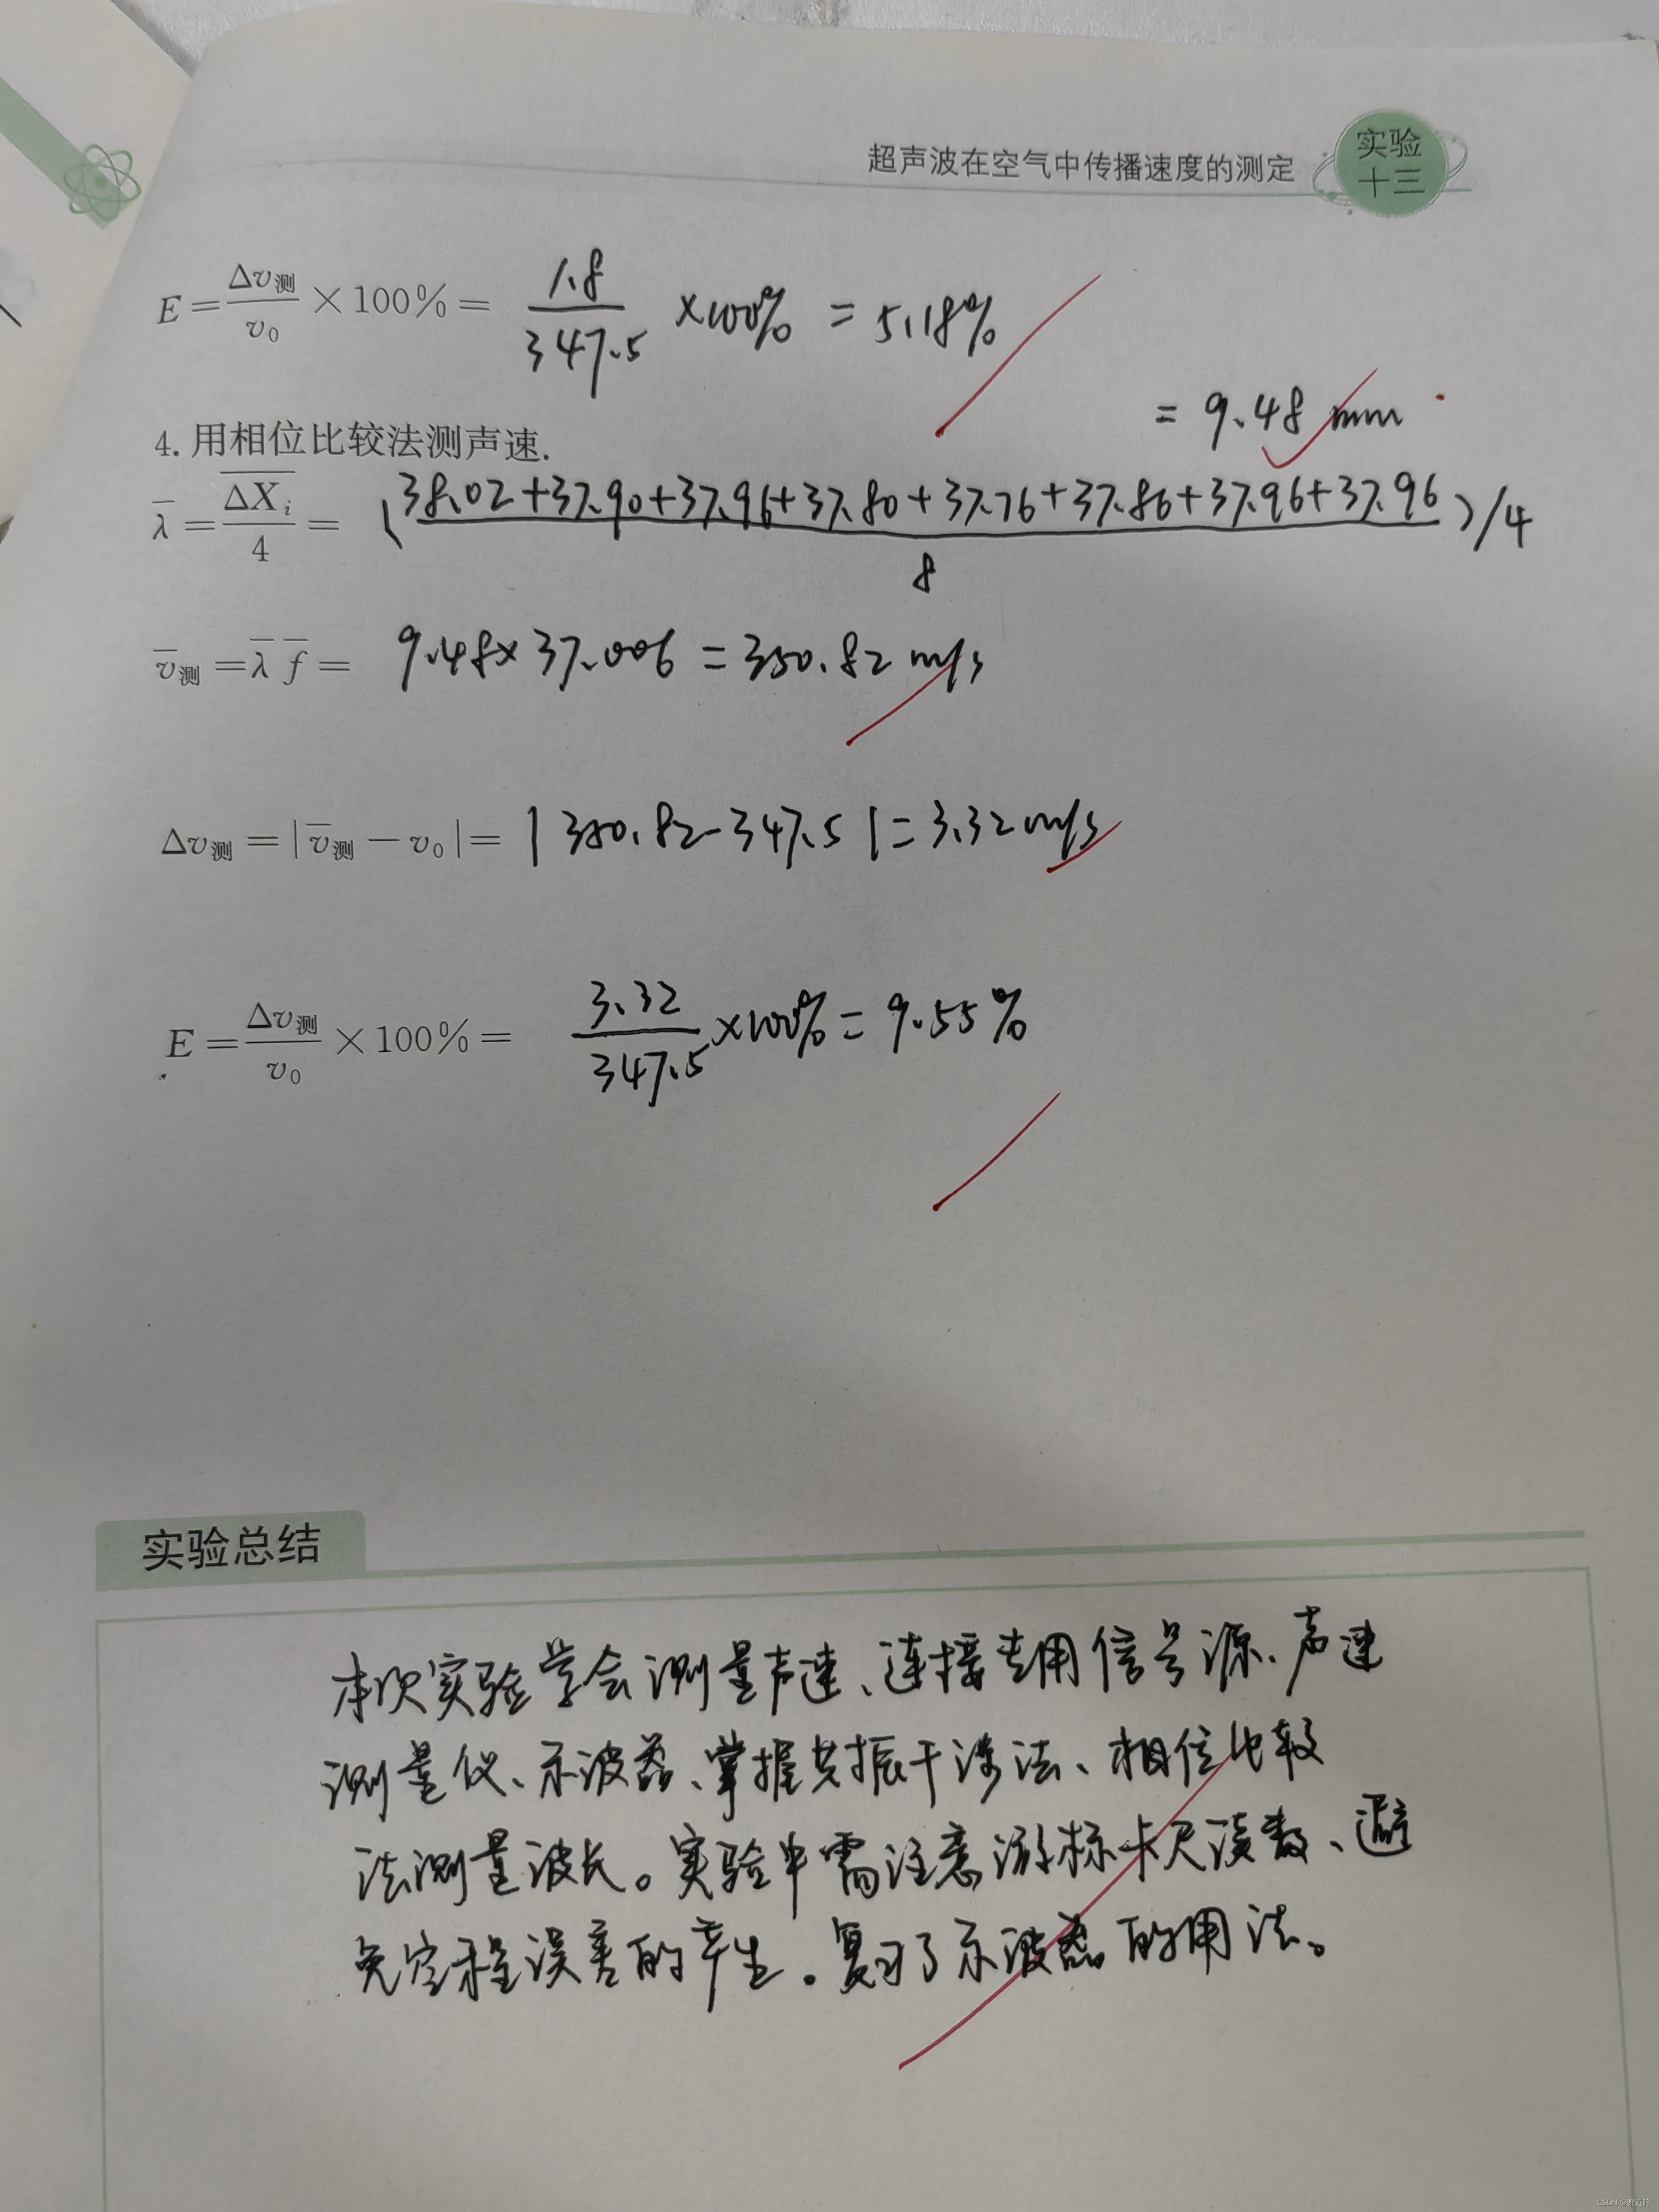 超声波在空气中传播速度的测定
实验
十三
E=Δv测/v₀×100%= 1.8/347.5 ×100% = 5.18%
= 9.48 mm
4. 用相位比较法测声速.
λ̄=ΔX̄ᵢ/4= (38.02+37.90+37.96+37.80+37.76+37.86+37.96+37.96/8)/4
v̄测=λ̄ f̄= 9.48×37.006=350.82 m/s
Δv测=|v̄测-v₀|= |350.82-347.5|=3.32m/s
E=Δv测/v₀×100%= 3.32/347.5×100%=9.55%
实验总结
本次实验学会测量声速、连接专用信号源、声速
测量仪、示波器、掌握共振干涉法、相位比较
法测量波长。实验中需注意游标卡尺读数、避
免空程误差的产生。复习了示波器的用法。
CSDN @谢道吟